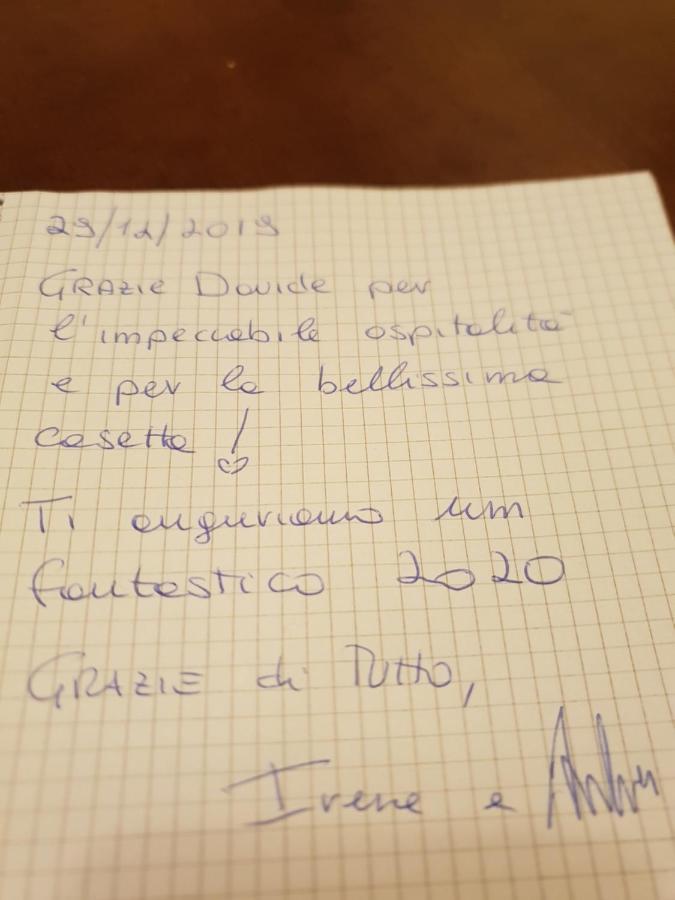 29/12/2019
GRAZIE Davide per
l'impeccabile ospitalità
e per la bellissima
casetta!
Ti auguriamo un
fantastico 2020
GRAZIE di TUTTO,
Irene e